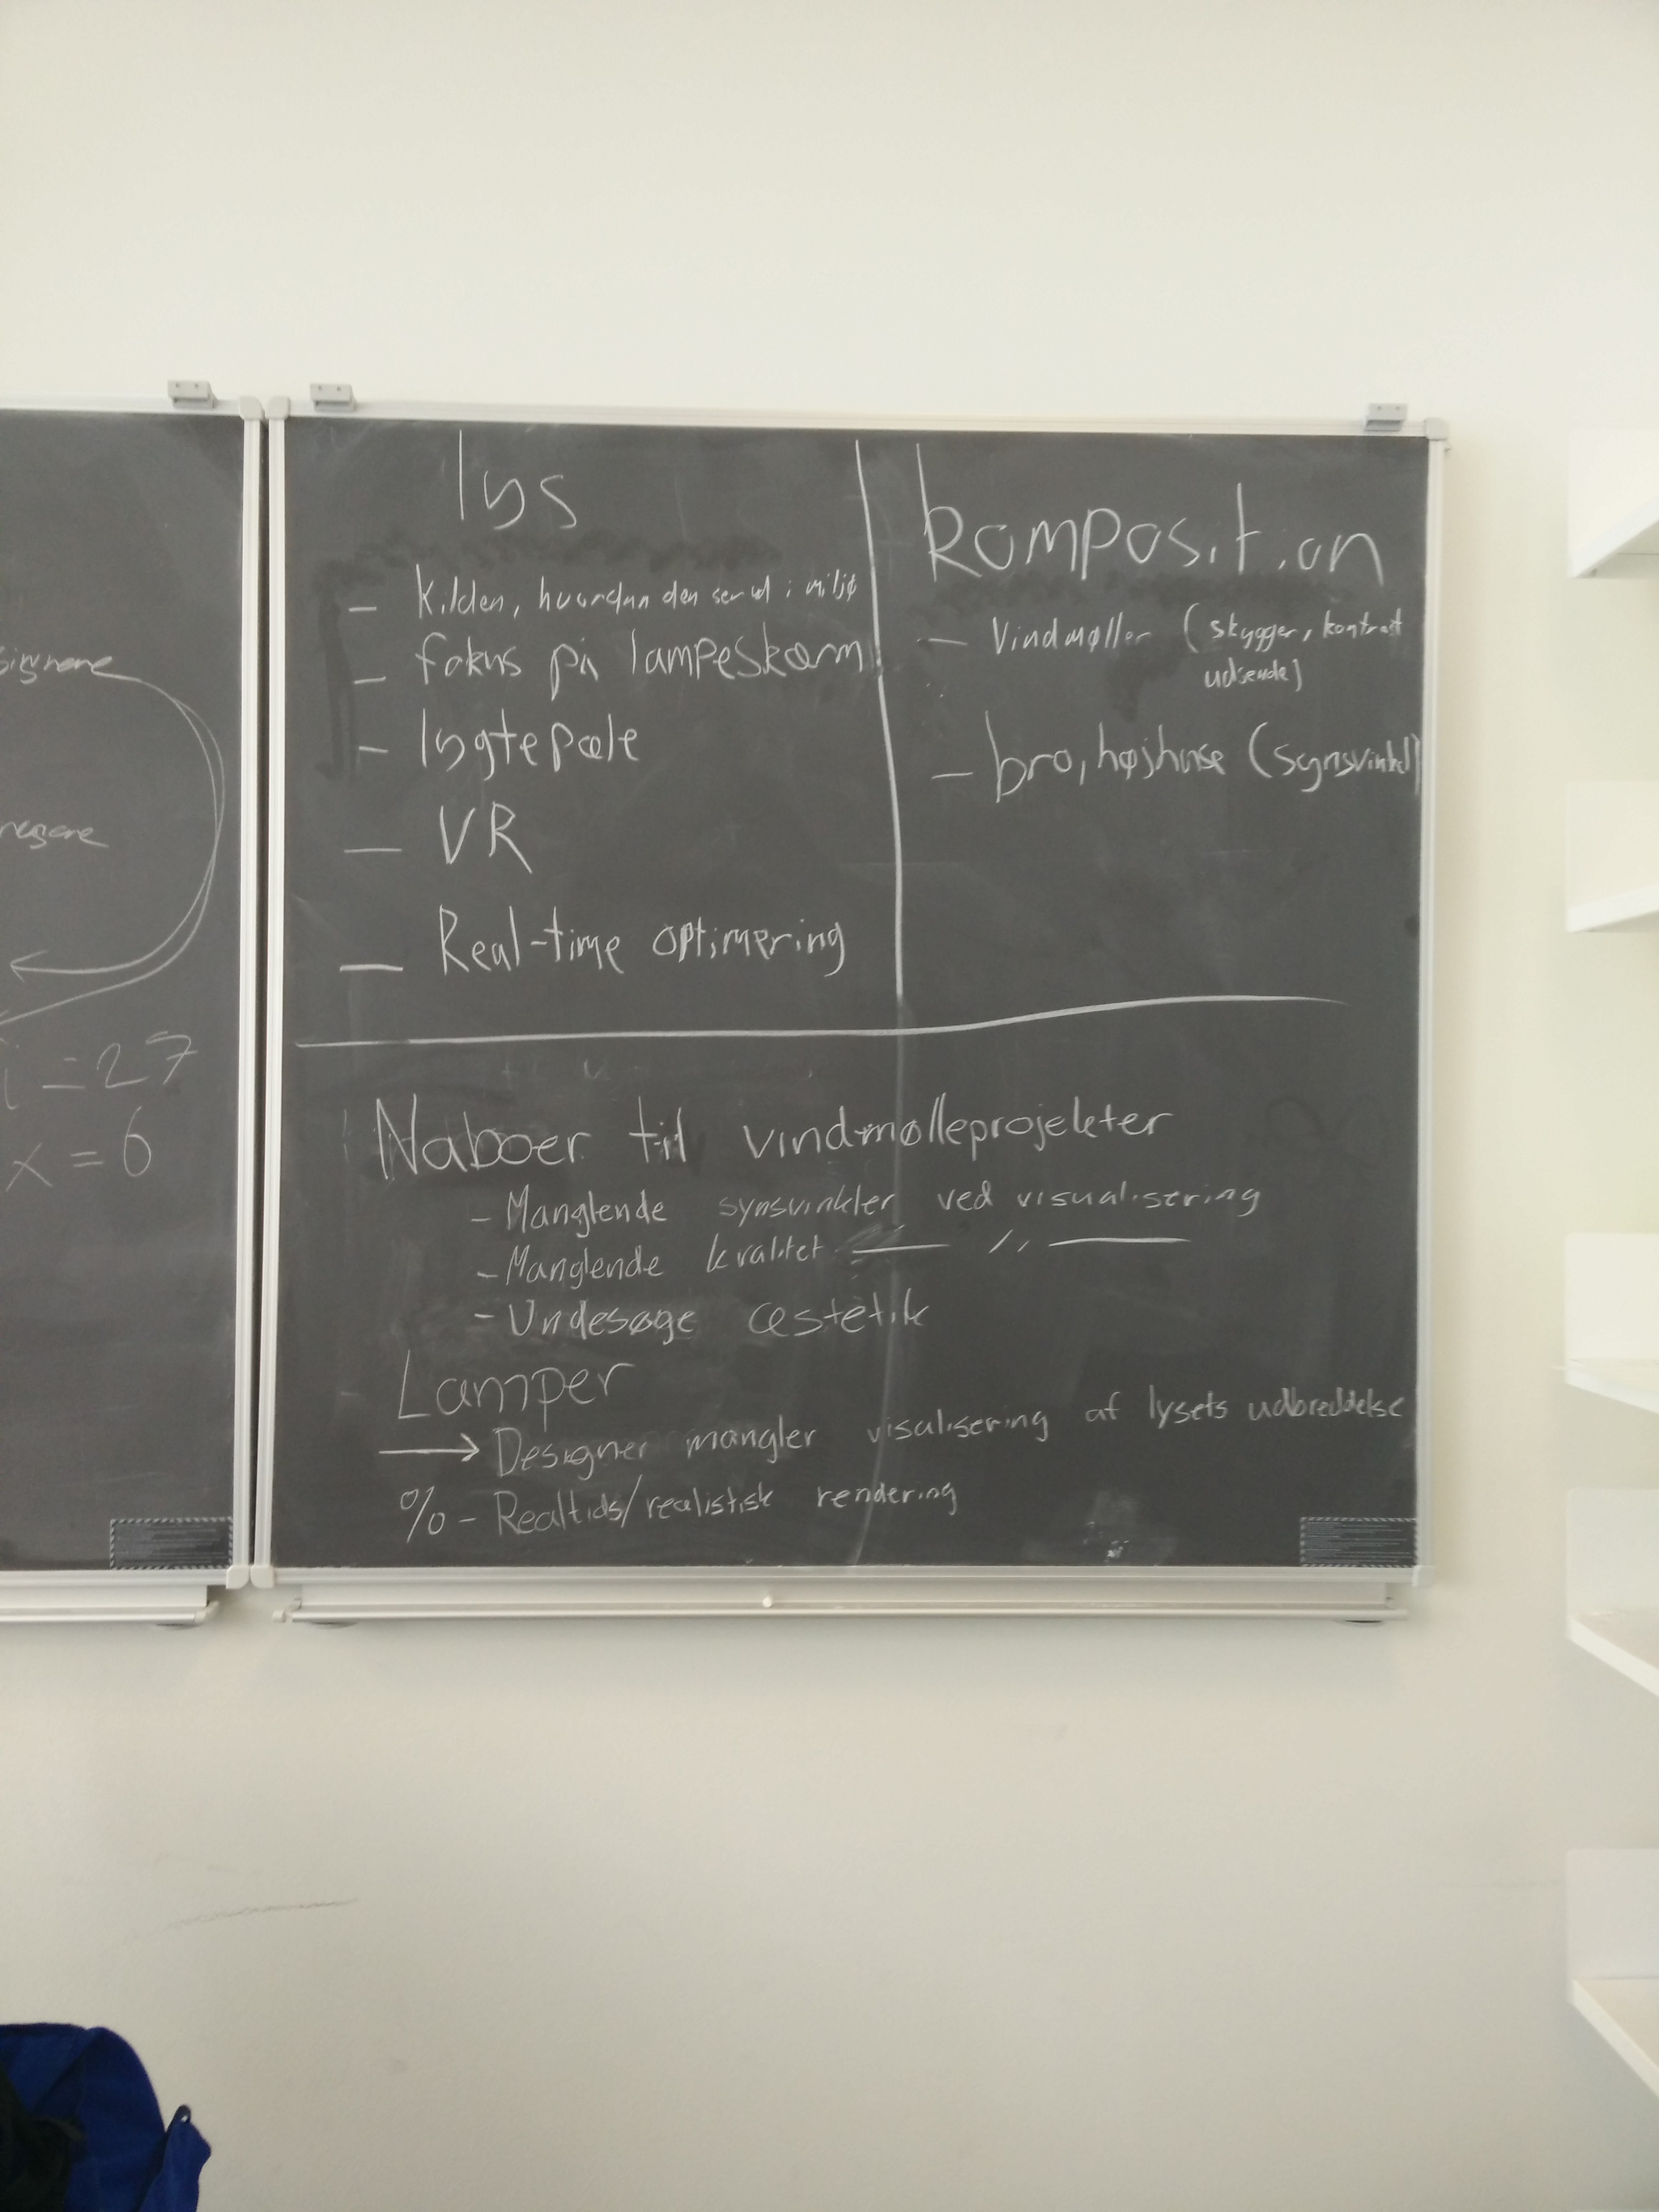 lys
- Kilden, hvordan den ser ud i miljø
- fokus på lampeskærm
- lygtepæle
- VR
- Real-time optimering
komposition
- Vindmøller (skygger, kontrast
udseende)
- bro, højhuse (synsvinkel)
Naboer til vindmølleprojekter
- Manglende synsvinkler ved visualisering
- Manglende kvalitet — // —
- Undesøge æstetik
Lamper
→ Designer mangler visualisering af lysets udbreddelse
% - Realtids/realistisk rendering
= 27
x = 6